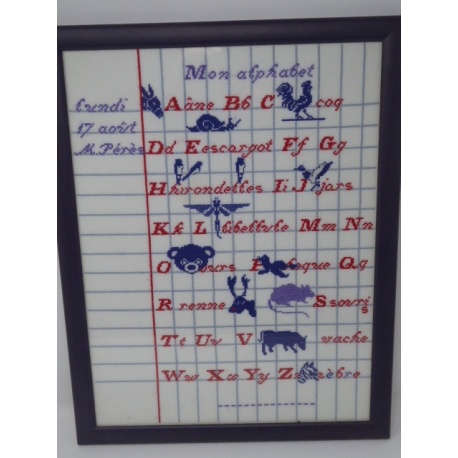 Mon alphabet
Lundi
17 août
M. Pérès
A âne Bb C coq
Dd E escargot Ff Gg
H hirondelles Ii J jars
Kk L libellule Mm Nn
O ours P Qq
R renne S souris
Tt Uu V vache
Ww Xx Yy Z zèbre